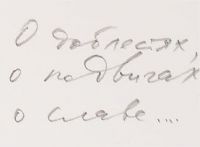 О доблестях,
о подвигах
о славе....